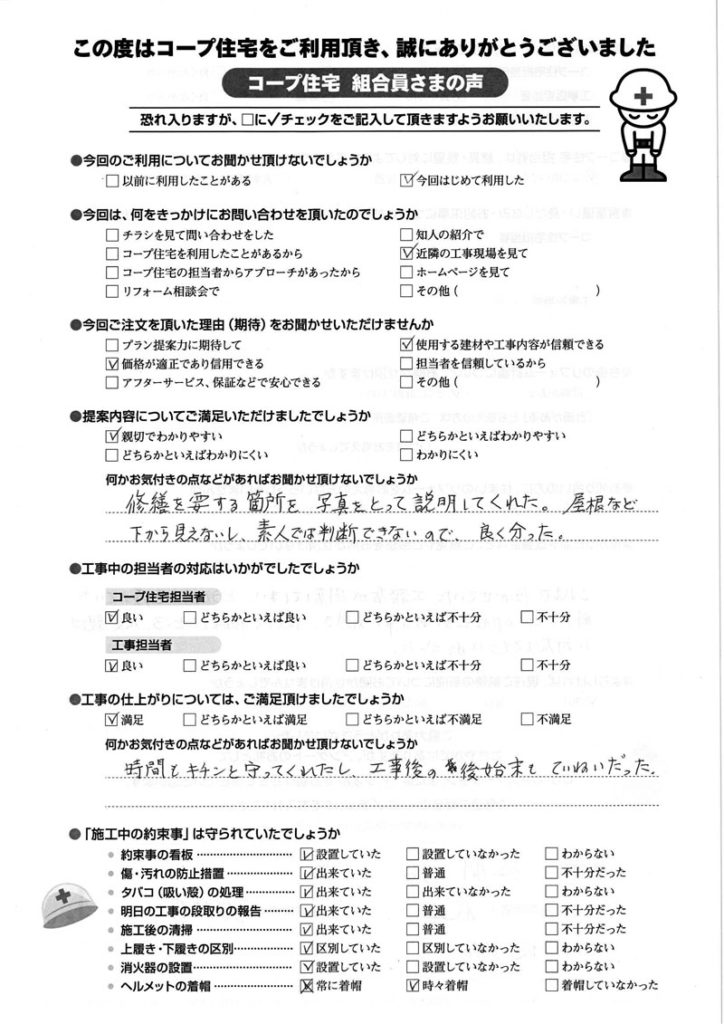 この度はコープ住宅をご利用頂き、誠にありがとうございました
コープ住宅 組合員さまの声
恐れ入りますが、□に✓チェックをご記入して頂きますようお願いいたします。
●今回のご利用についてお聞かせ頂けないでしょうか
□以前に利用したことがある ☑今回はじめて利用した
●今回は、何をきっかけにお問い合わせを頂いたのでしょうか
□チラシを見て問い合わせをした □知人の紹介で
□コープ住宅を利用したことがあるから ☑近隣の工事現場を見て
□コープ住宅の担当者からアプローチがあったから □ホームページを見て
□リフォーム相談会で □その他 ( )
●今回ご注文を頂いた理由(期待)をお聞かせいただけませんか
□プラン提案力に期待して ☑使用する建材や工事内容が信頼できる
☑価格が適正であり信用できる □担当者を信頼しているから
□アフターサービス、保証などで安心できる □その他 ( )
●提案内容についてご満足いただけましたでしょうか
☑親切でわかりやすい □どちらかといえばわかりやすい
□どちらかといえばわかりにくい □わかりにくい
何かお気付きの点などがあればお聞かせ頂けないでしょうか
修繕を要する箇所を 写真をとって説明してくれた。屋根など
下から見えないし、素人では判断できないので、良く分った。
●工事中の担当者の対応はいかがでしたでしょうか
コープ住宅担当者
☑良い □どちらかといえば良い □どちらかといえば不十分 □不十分
工事担当者
☑良い □どちらかといえば良い □どちらかといえば不十分 □不十分
●工事の仕上がりについては、ご満足頂けましたでしょうか
☑満足 □どちらかといえば満足 □どちらかといえば不満足 □不満足
何かお気付きの点などがあればお聞かせ頂けないでしょうか
時間もキチンと守ってくれたし、工事後の後始末もていねいだった。
●「施工中の約束事」は守られていたでしょうか
● 約束事の看板 ☑設置していた □設置していなかった □わからない
● 傷・汚れの防止措置 ☑出来ていた □普通 □不十分だった
● タバコ(吸い殻)の処理 ☑出来ていた □出来ていなかった □わからない
● 明日の工事の段取りの報告 ☑出来ていた □普通 □不十分だった
● 施工後の清掃 ☑出来ていた □普通 □不十分だった
● 上履き・下履きの区別 ☑区別していた □区別していなかった □わからない
● 消火器の設置 ☑設置していた □設置していなかった □わからない
● ヘルメットの着帽 ☒常に着帽 ☑時々着帽 □着帽していなかった